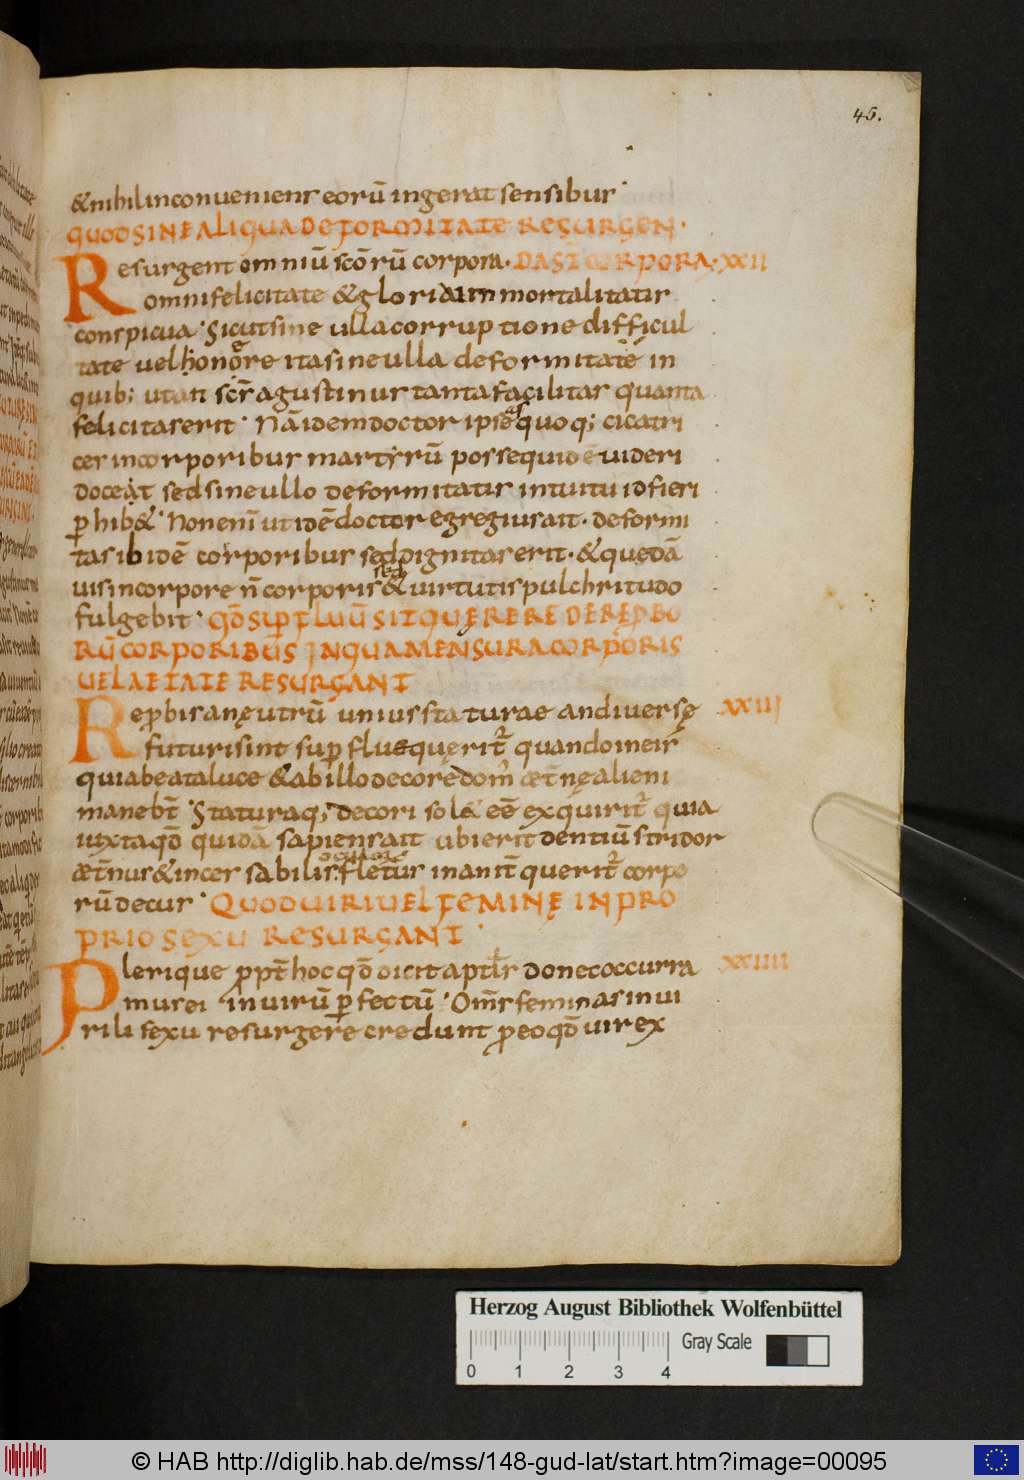 45.
&nihil inconueniens eorū ingerat sensibus·
QUOD SINE ALIQUA DEFORMITATE RESURGEN·
Resurgent omniū scōrū corpora· DA SCI CORPORA· XXII
omni felicitate & gloria inmortalitatis
conspicua· Sicut sine ulla corruptione difficul
tate uel honore ita sine ulla deformitate in
quib; ut ait scs̄ agustinus tanta facilitas quanta
felicitas erit· Nā idem doctor ipse quoq; cicatri
ces in corporibus martyrū posse quidē uideri
doceat sed sine ullo deformitatis intuitu id fieri
ꝑhib&· Non enī ut idē doctor egregius ait· deformi
tas ibidē corporibus sed dignitas erit· & quedā
uis in corpore n̄ corporis sed & uirtutis pulchritudo
fulgebit· QD̄ SUꝑFLUŪ SIT QUERERE DE REꝓBO
RŪ CORPORIBUS IN QUA MENSURA CORPORIS
UEL AETATE RESURGANT
Reꝓbis anę utrū unius staturae an diuersę XXIII
futuri sint suꝑflue querit̄ quando in eis
quia beata luce & ab illo decore dom̄ aet̄nę alieni
manebt̄· Staturaq; decori sola eē exquirit̄ quia
iuxta qd̄ quidā sapiens ait ubi erit dentiū stridor
aet̄nus & incessabilis fletus inanit̄ querit̄ corpo
rū decus· QUOD UIRI UEL FEMINE IN PRO
PRIO SEXU RESURGANT·
Plerique ꝓpt̄ hoc qd̄ dicit apt̄ls donec occurra XXIIII
mus ei in uirū ꝑfectū· Om̄s feminas in ui
rili sexu resurgere credunt ꝓeo qd̄ uir ex
Herzog August Bibliothek Wolfenbüttel
Gray Scale
0 1 2 3 4
© HAB http://diglib.hab.de/mss/148-gud-lat/start.htm?image=00095